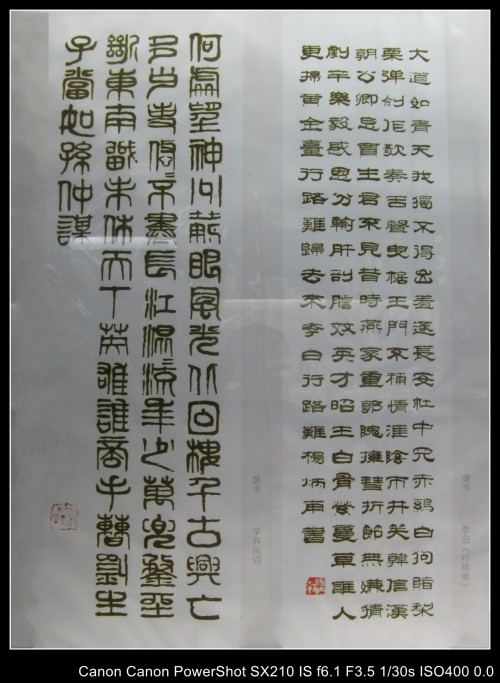 大道如青天我獨不得出羞逐長安社中兒赤鷄白狗賭梨
栗弹剑作歌奏苦聲曳裾王門不稱情淮陰市井笑韓信漢
朝公卿忌賈生君不見昔時燕家重郭隗擁彗折節無嫌猜
劇辛樂毅感恩分輸肝剖膽效英才昭王白骨縈蔓草誰人
更掃黄金臺行路難歸去来李白行路難楊炳甫書
隶书 李白《行路难》
何處望神州滿眼風光北固樓千古興亡
多少事悠悠不盡長江滾滾流年少萬兜鍪坐
斷東南戰未休天下英雄誰敵手曹劉生
子當如孫仲謀
篆书 辛弃疾词
Canon Canon PowerShot SX210 IS f6.1 F3.5 1/30s ISO400 0.0